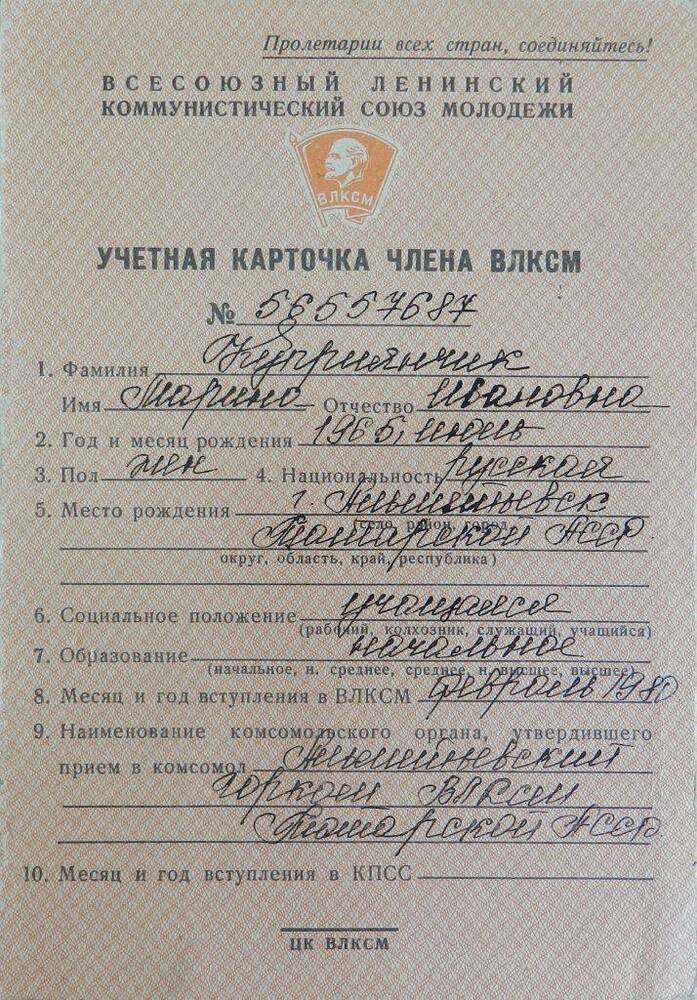 Пролетарии всех стран, соединяйтесь!
ВСЕСОЮЗНЫЙ ЛЕНИНСКИЙ
КОММУНИСТИЧЕСКИЙ СОЮЗ МОЛОДЕЖИ
ВЛКСМ
УЧЕТНАЯ КАРТОЧКА ЧЛЕНА ВЛКСМ
№ 56557687
1. Фамилия Куприянчик
Имя Марина Отчество Ивановна
2. Год и месяц рождения 1965, июль
3. Пол жен 4. Национальность русская
5. Место рождения г. Альметьевск
(село, район, город,
Татарской АССР
округ, область, край, республика)
6. Социальное положение учащаяся
(рабочий, колхозник, служащий, учащийся)
7. Образование начальное
(начальное, н. среднее, среднее, н. высшее, высшее)
8. Месяц и год вступления в ВЛКСМ февраль 1980
9. Наименование комсомольского органа, утвердившего
прием в комсомол Альметьевский
горком ВЛКСМ
Татарской АССР
10. Месяц и год вступления в КПСС
ЦК ВЛКСМ